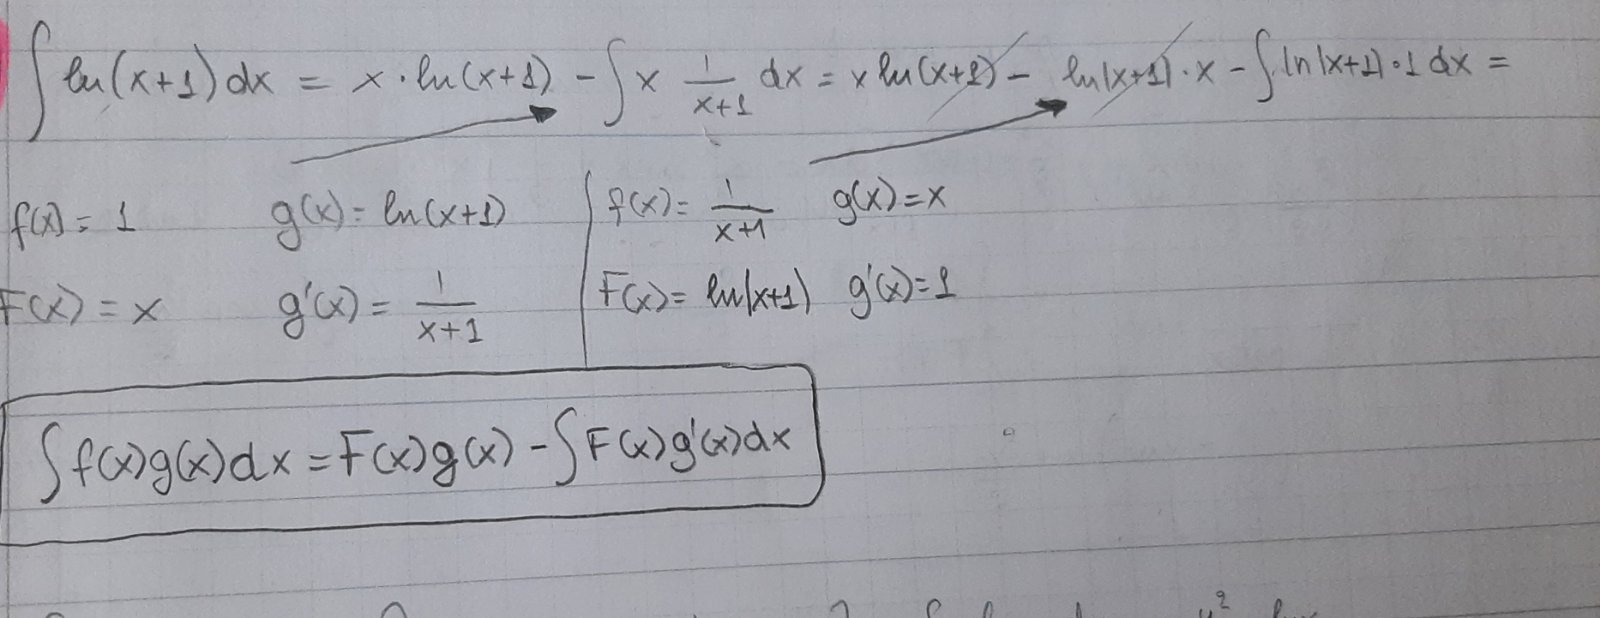 ∫ ln(x+1) dx = x · ln(x+1) - ∫ x 1/(x+1) dx = x ln(x+1) - ln|x+1| · x - ∫ ln|x+1| · 1 dx =
f(x) = 1 g(x) = ln(x+1) f(x) = 1/(x+1) g(x) = x
F(x) = x g'(x) = 1/(x+1) F(x) = ln|x+1| g'(x) = 1
∫ f(x)g(x)dx = F(x)g(x) - ∫ F(x)g'(x)dx